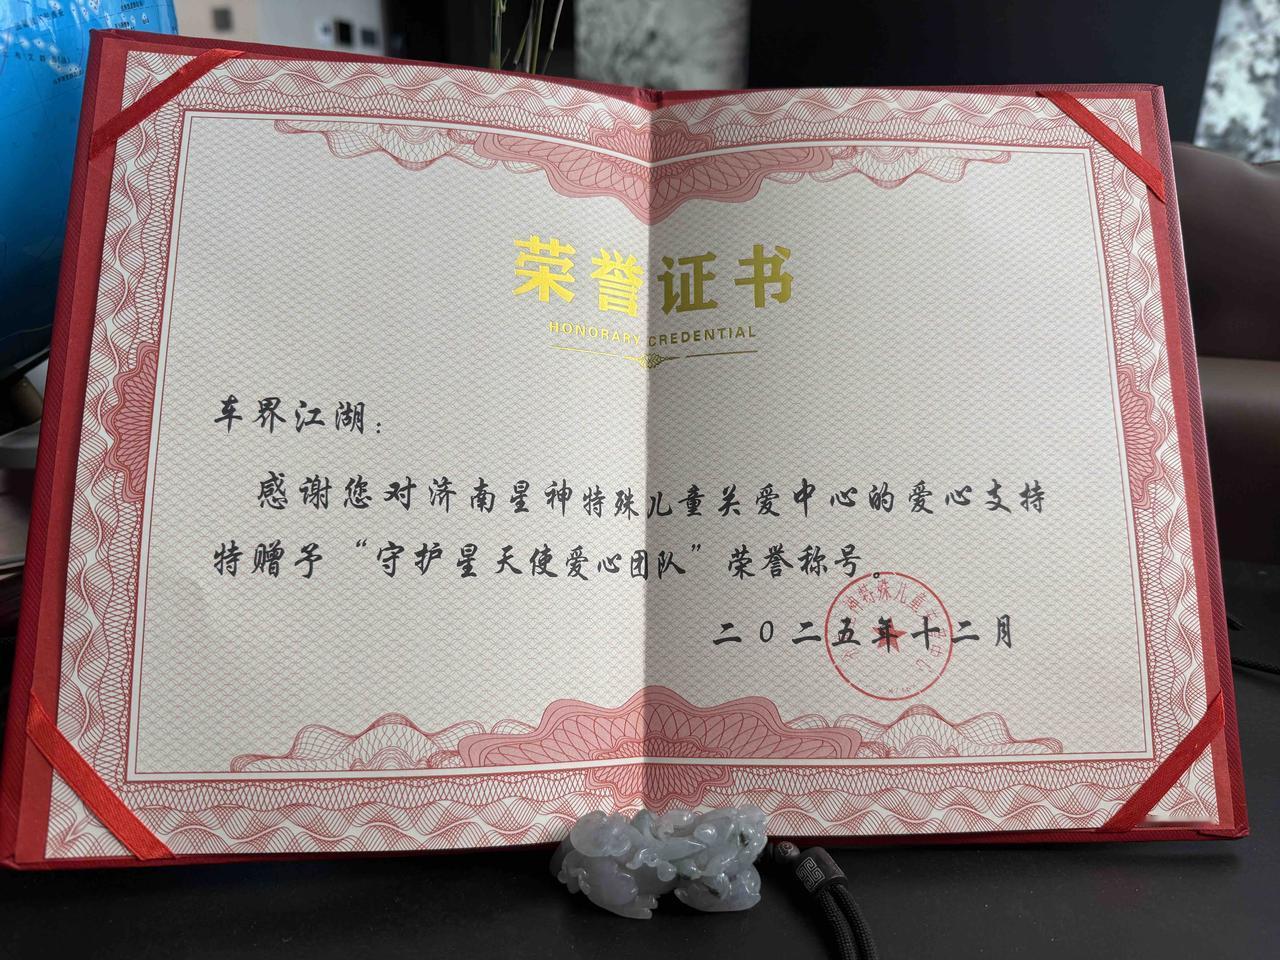 荣誉证书
HONORARY CREDENTIAL
车界江湖：
感谢您对济南星神特殊儿童关爱中心的爱心支持
特赠予“守护星天使爱心团队”荣誉称号。
二〇二五年十二月
神特殊儿童